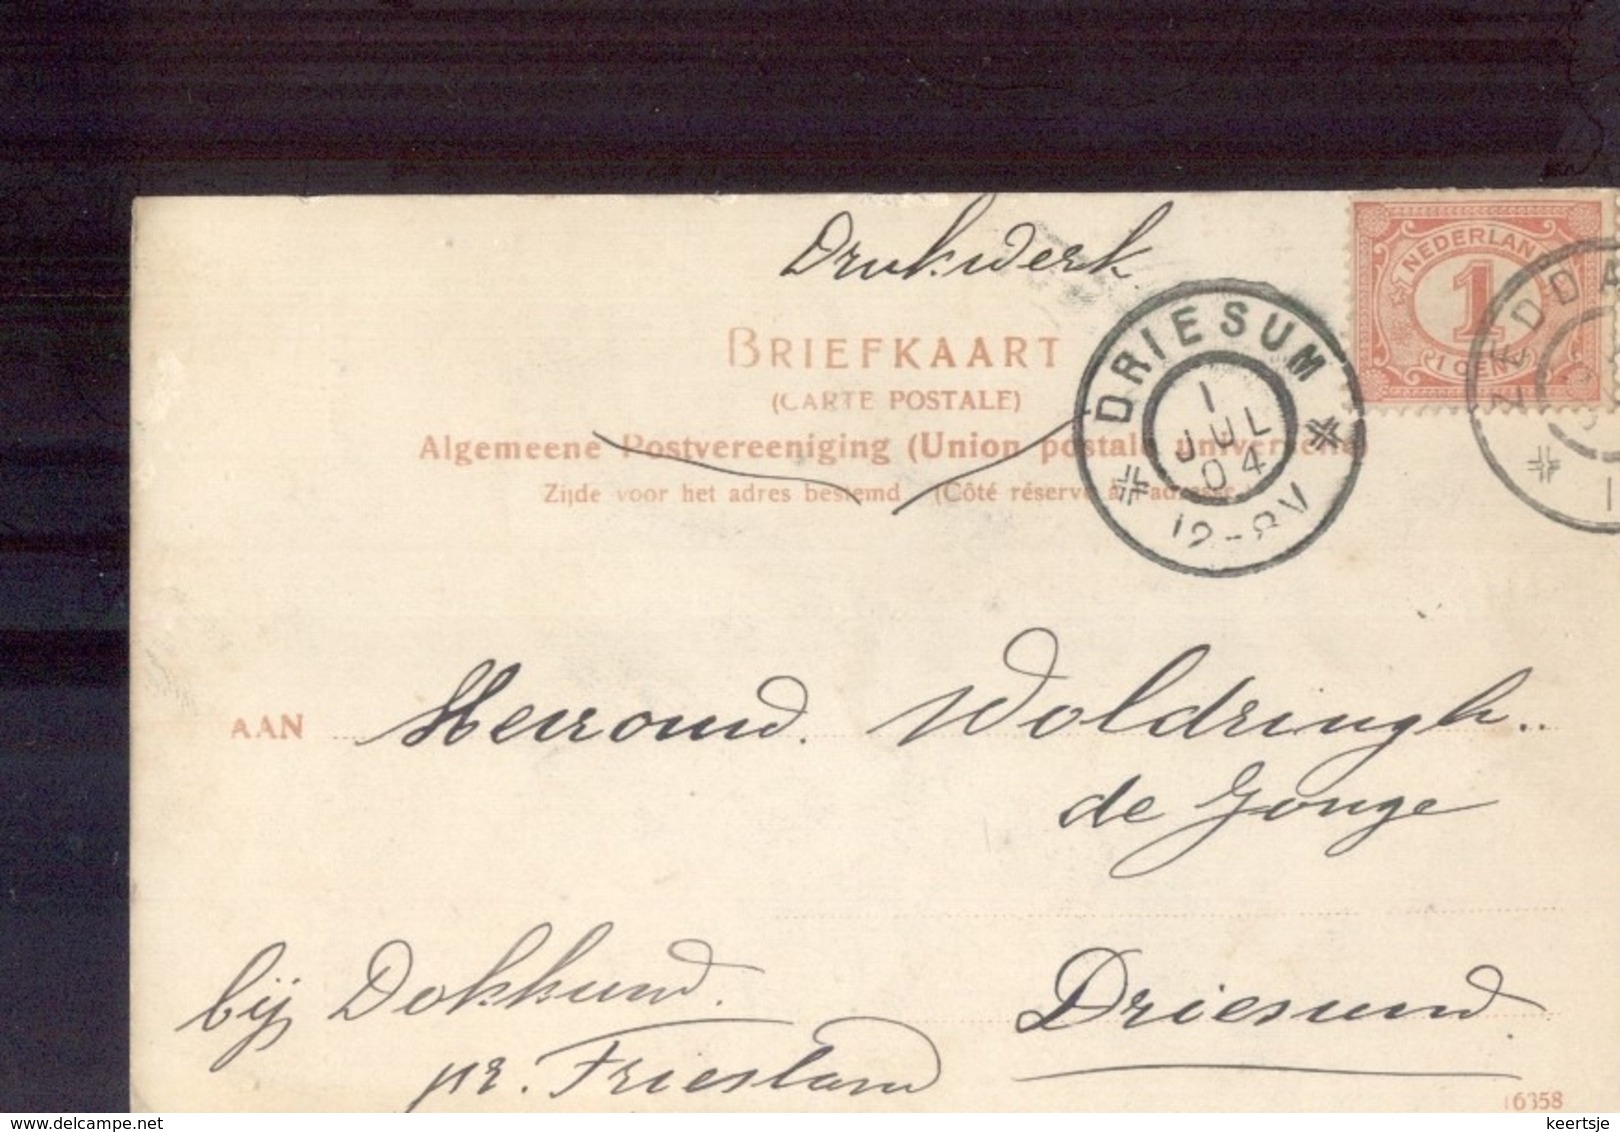 Drukwerk
NEDERLAN
1
1 CEN
DRIESUM
1
JUL
04
12-8V
BRIEFKAART
(CARTE POSTALE)
Algemeene Postvereeniging (Union postale universelle)
Zijde voor het adres bestemd (Côté réservé à l'adresse
AAN Woldringh
de Jonge
Driesum
bij Dokkum
pr. Friesland
16358
keertsje